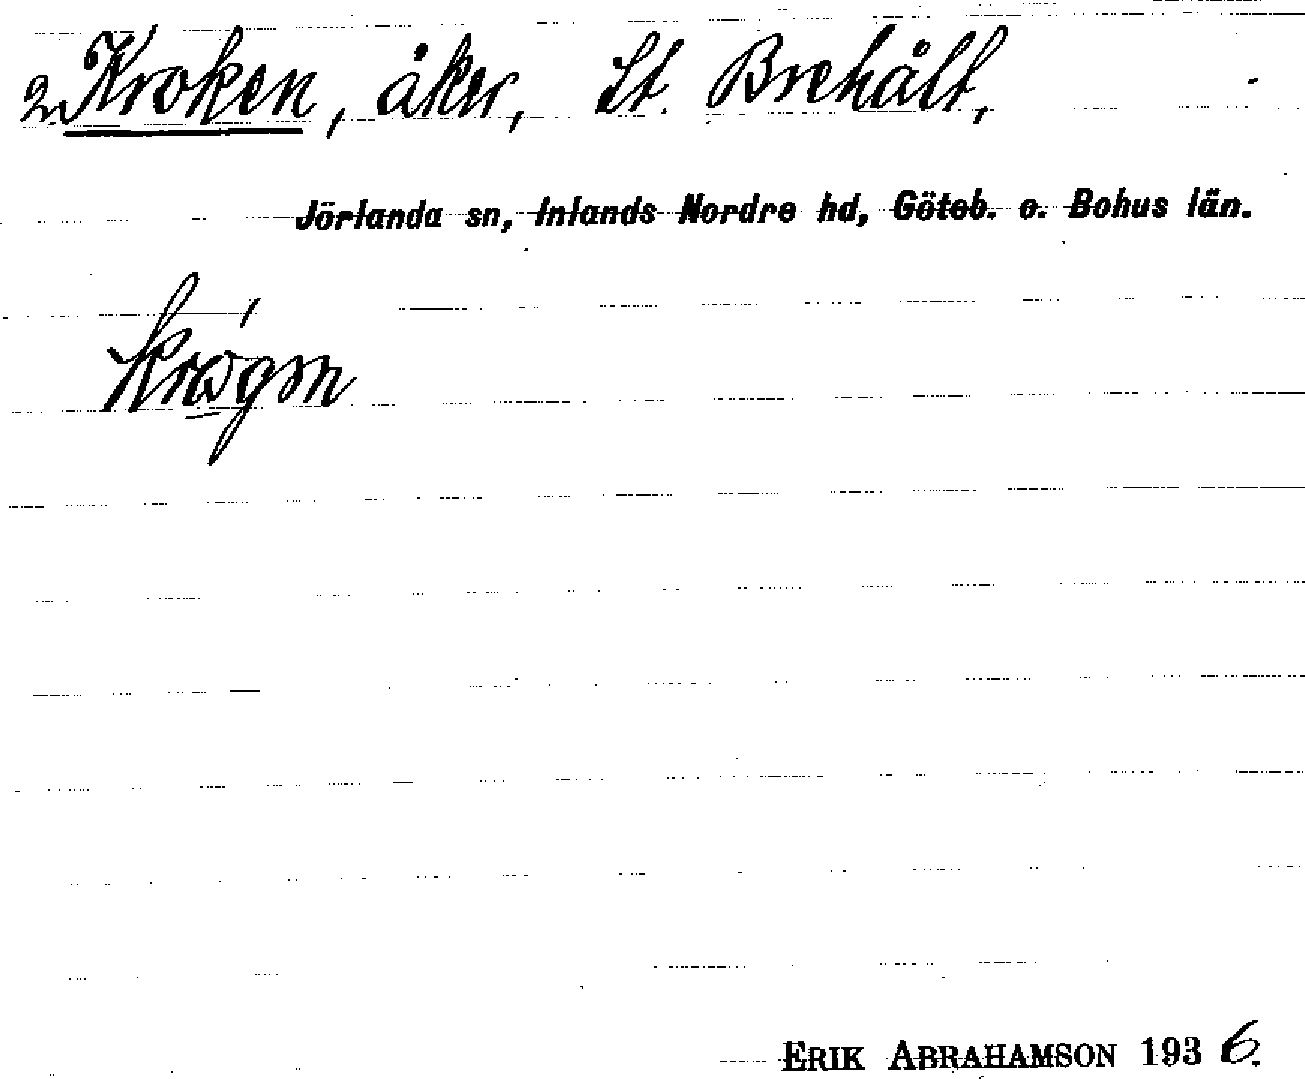 2 Kroken, åker, St. Brehålt,
Jörlanda sn, Inlands Nordre hd, Göteb. o. Bohus län.
ERIK ABRAHAMSON 1936.